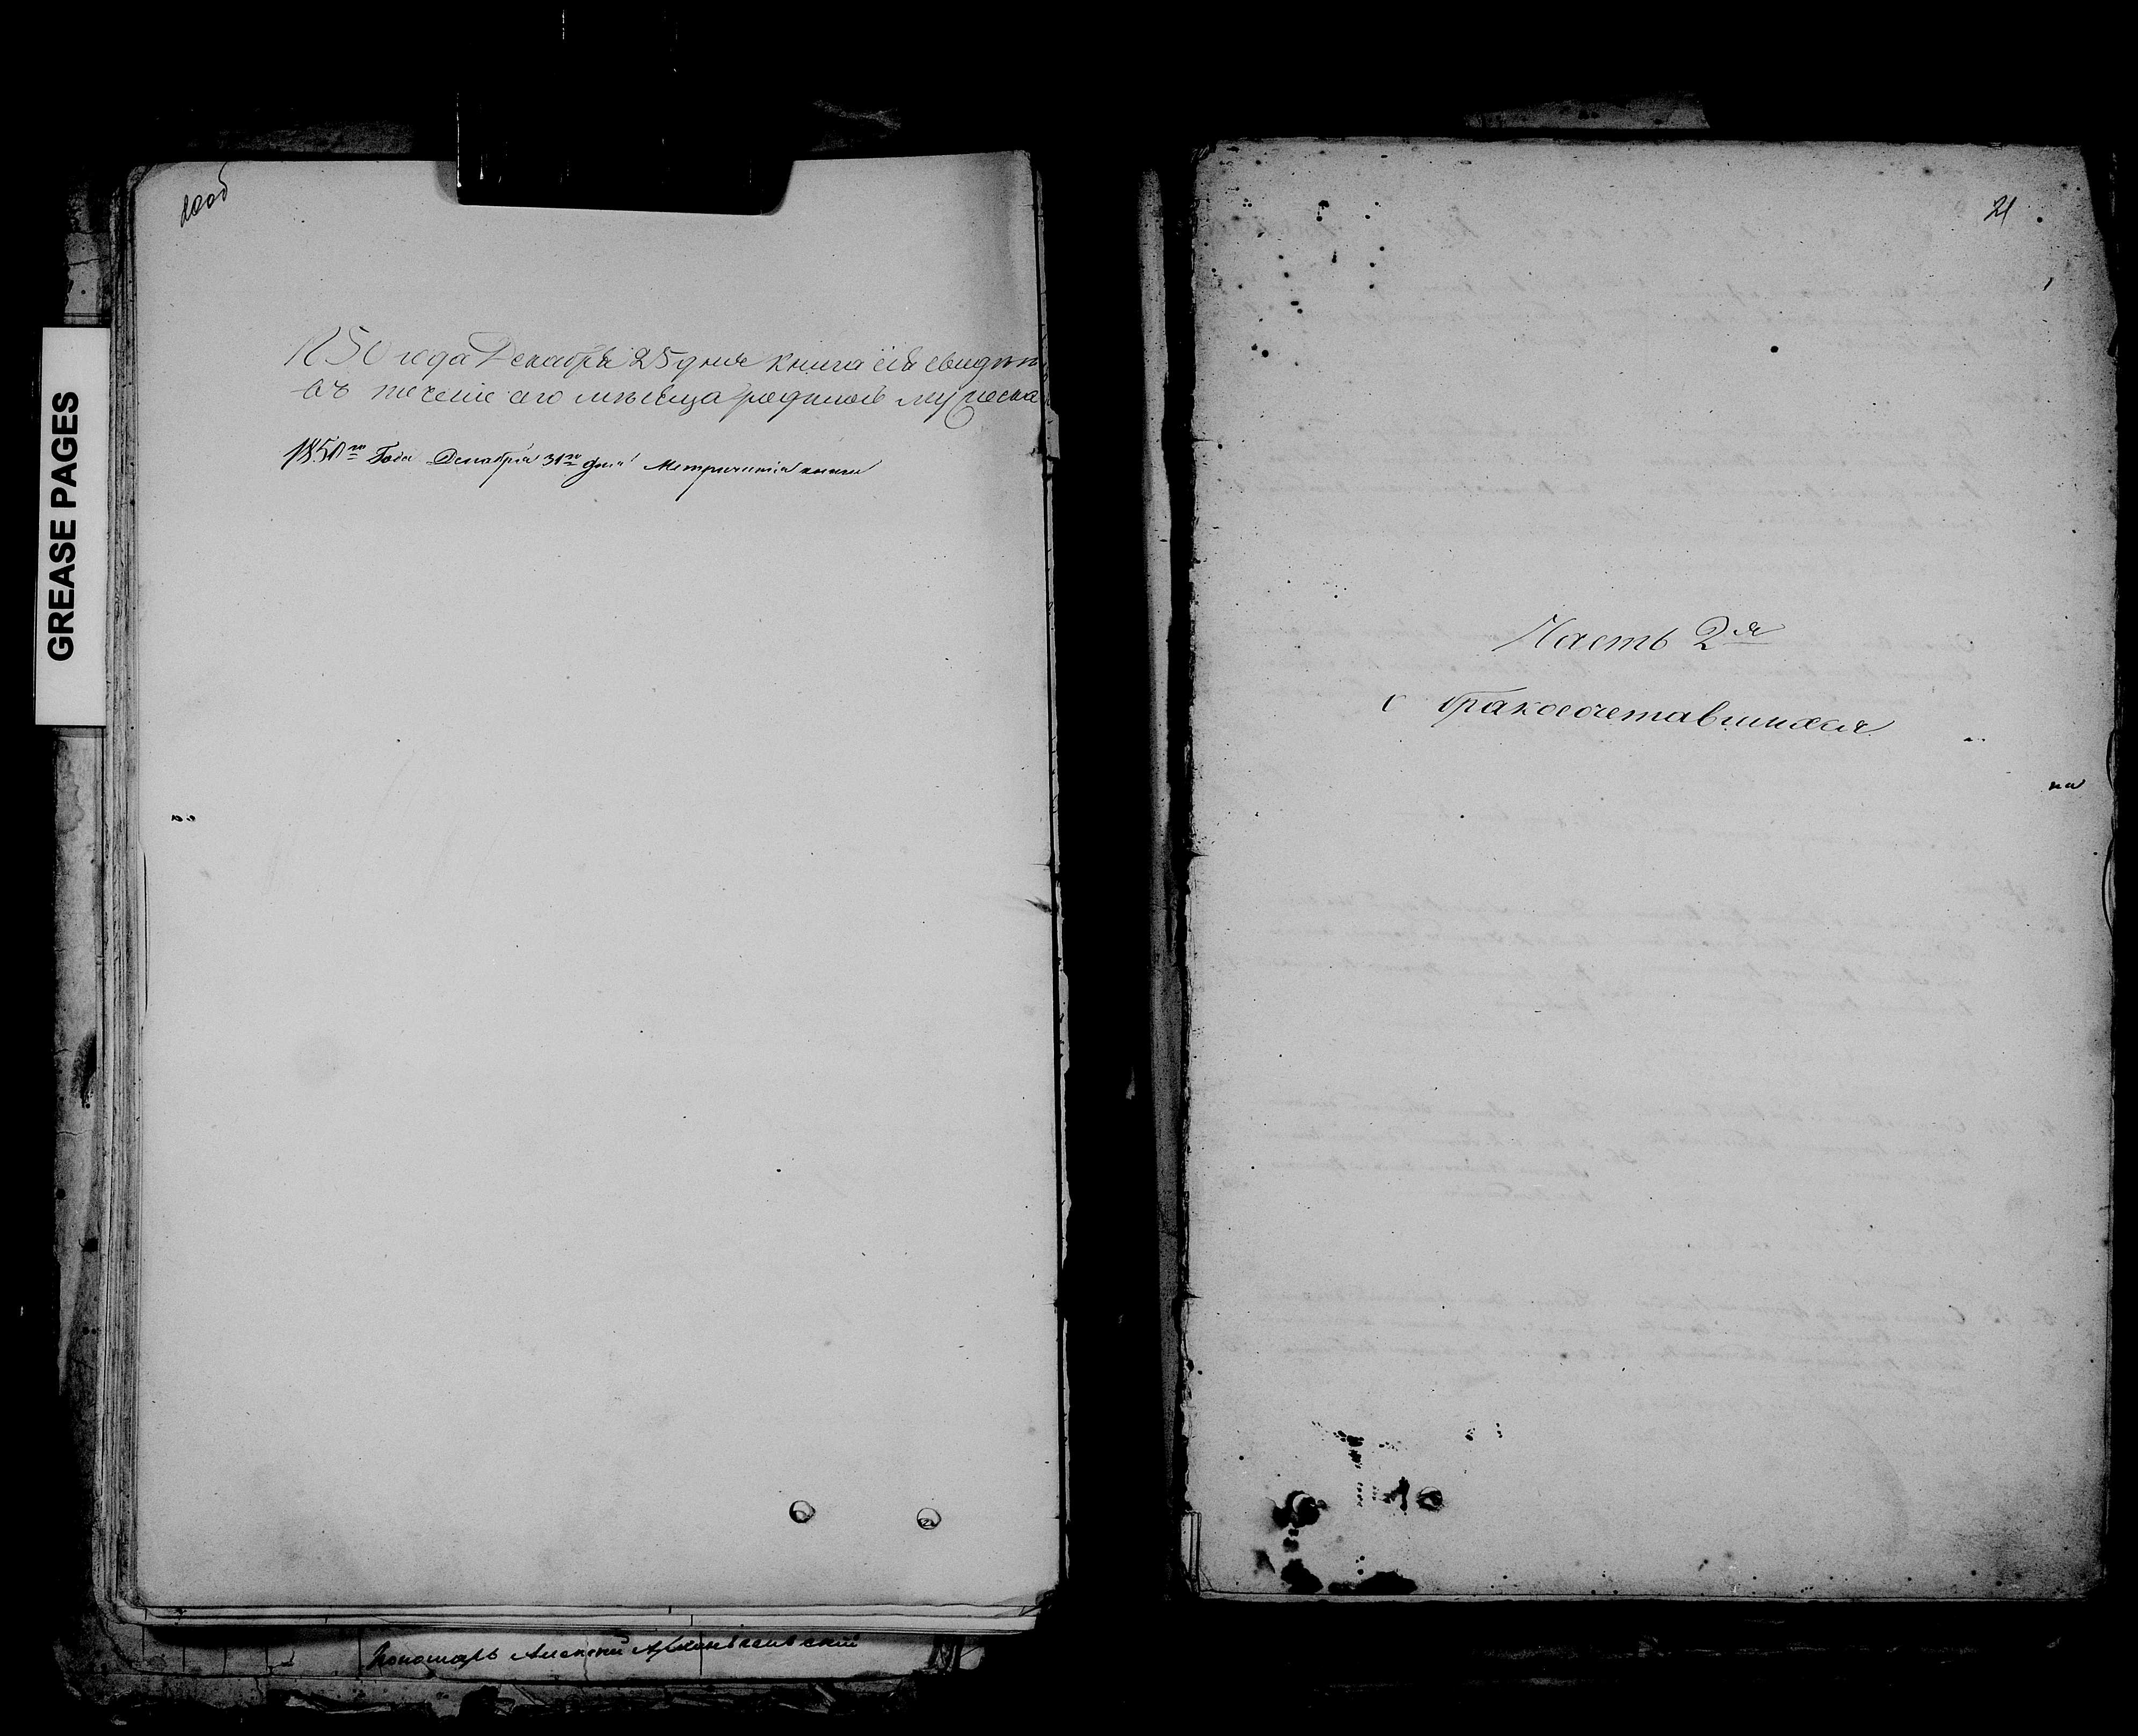 20 об
1850 года Декабря 25 дня книга сія свидѣт
въ теченіе его мѣсяца родилось му
1850го Года Декабря 31го дня Метрическія книги
GREASE PAGES
Пономарь Алексѣй
21
Часть 2я
о бракосочетавшихся
на